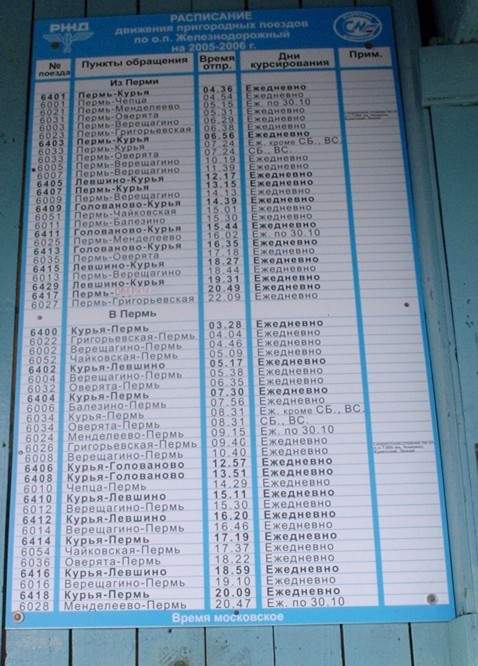 РАСПИСАНИЕ
РЖД движения пригородных поездов
по о.п. Железнодорожный
на 2005-2006 г.
№ поезда Пункты обращения Время отпр. Дни курсирования Прим.
Из Перми
6401 Пермь-Курья 04.36 Ежедневно
6001 Пермь-Чепца 04.54 Ежедневно
6021 Пермь-Менделеево 05.15 Еж. по 30.10
6031 Пермь-Оверята 05.31 Ежедневно
6003 Пермь-Верещагино 06.29 Ежедневно
6023 Пермь-Григорьевская 06.38 Ежедневно
6403 Пермь-Курья 06.56 Ежедневно
6033 Пермь-Курья 07.24 Еж. кроме СБ., ВС.
6033 Пермь-Оверята 07.24 СБ., ВС.
6005 Пермь-Верещагино 10.19 Ежедневно
6007 Пермь-Верещагино 11.39 Ежедневно
6405 Левшино-Курья 12.17 Ежедневно
6407 Пермь-Курья 13.15 Ежедневно
6009 Пермь-Верещагино 14.13 Ежедневно
6409 Голованово-Курья 14.39 Ежедневно
6051 Пермь-Чайковская 15.01 Ежедневно
6011 Пермь-Балезино 15.30 Ежедневно
6411 Голованово-Курья 15.44 Ежедневно
6025 Пермь-Менделеево 16.02 Еж. по 30.10
6413 Голованово-Курья 16.35 Ежедневно
6035 Пермь-Оверята 17.18 Ежедневно
6415 Левшино-Курья 18.27 Ежедневно
6013 Пермь-Верещагино 18.44 Ежедневно
6429 Левшино-Курья 19.31 Ежедневно
6417 Пермь- 20.49 Ежедневно
6027 Пермь-Григорьевская 22.09 Ежедневно
В Пермь
6400 Курья-Пермь 03.28 Ежедневно
6022 Григорьевская-Пермь 04.04 Ежедневно
6002 Верещагино-Пермь 04.46 Ежедневно
6052 Чайковская-Пермь 05.09 Ежедневно
6402 Курья-Левшино 05.17 Ежедневно
6004 Верещагино-Пермь 05.38 Ежедневно
6032 Оверята-Пермь 06.35 Ежедневно
6404 Курья-Пермь 07.30 Ежедневно
6006 Балезино-Пермь 07.56 Ежедневно
6034 Курья-Пермь 08.31 Еж. кроме СБ., ВС.
6034 Оверята-Пермь 08.31 СБ., ВС.
6024 Менделеево-Пермь 09.15 Еж. по 30.10
6026 Григорьевская-Пермь 09.40 Ежедневно
6008 Верещагино-Пермь 10.40 Ежедневно
6406 Курья-Голованово 12.57 Ежедневно
6408 Курья-Голованово 13.51 Ежедневно
6010 Чепца-Пермь 14.29 Ежедневно
6410 Курья-Левшино 15.11 Ежедневно
6012 Верещагино-Пермь 15.30 Ежедневно
6412 Курья-Левшино 16.20 Ежедневно
6014 Верещагино-Пермь 16.46 Ежедневно
6414 Курья-Пермь 17.19 Ежедневно
6054 Чайковская-Пермь 17.37 Ежедневно
6036 Оверята-Пермь 18.22 Ежедневно
6416 Курья-Левшино 18.59 Ежедневно
6016 Верещагино-Пермь 19.10 Ежедневно
6418 Курья-Пермь 20.09 Ежедневно
6028 Менделеево-Пермь 20.47 Еж. по 30.10
Время московское